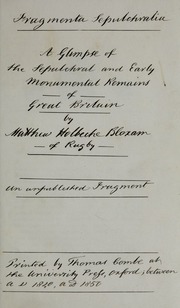 Fragmenta Sepulchralia
A Glimpse of
the Sepulchral and Early
Monumental Remains
of
Great Britain
by
Matthew Holbeche Bloxam
of Rugby
An unpublished Fragment
Printed by Thomas Combe at
the University Press, Oxford, between
A.D. 1840, A.D. 1850